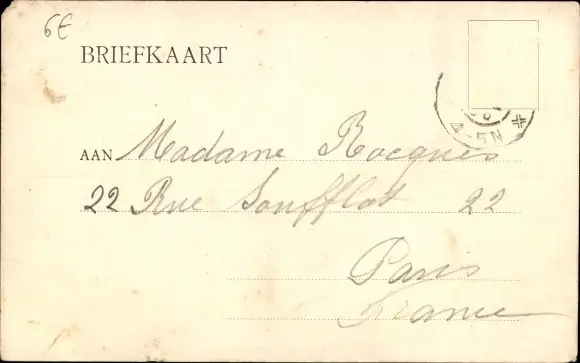 6€
BRIEFKAART
4-5N
AAN Madame Rocques
22 Rue Soufflot 22
Paris
France